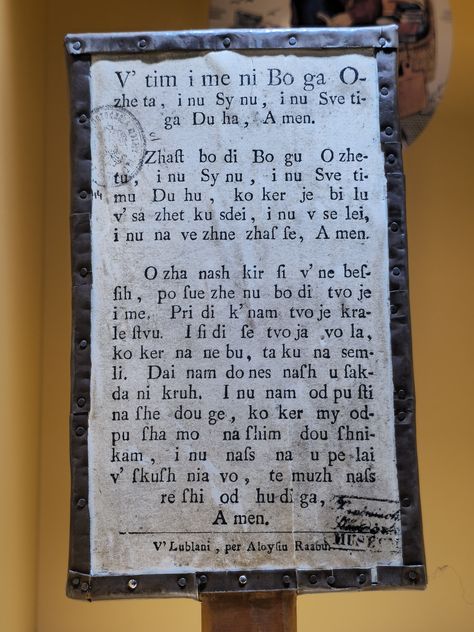 V' tim i me ni Bo ga O-
zhe ta, i nu Sy nu, i nu Sve ti-
ga Du ha, A men.
Zhaſt bo di Bo gu O zhe-
tu, i nu Sy nu, i nu Sve ti-
mu Du hu, ko ker je bi lu
v' sa zhet ku sdei, i nu v se lei,
i nu na ve zhne zhaſ ſe, A men.
O zha nash kir ſi v' ne beſ-
ſih, po ſue zhe nu bo di tvo je
i me. Pri di k' nam tvo je kra-
le ſtvu. I ſi di ſe tvo ja vo la,
ko ker na ne bu, ta ku na sem-
li. Dai nam do nes naſh u ſak-
da ni kruh. I nu nam od pu ſti
na ſhe dou ge, ko ker my od-
pu ſha mo na ſhim dou ſhni-
kam, i nu naſs na u pe lai
v' ſkuſh nia vo, te muzh naſs
re ſhi od hu di ga,
A men.
V' Lublani, per Aloyſiu Raabu
MUSE